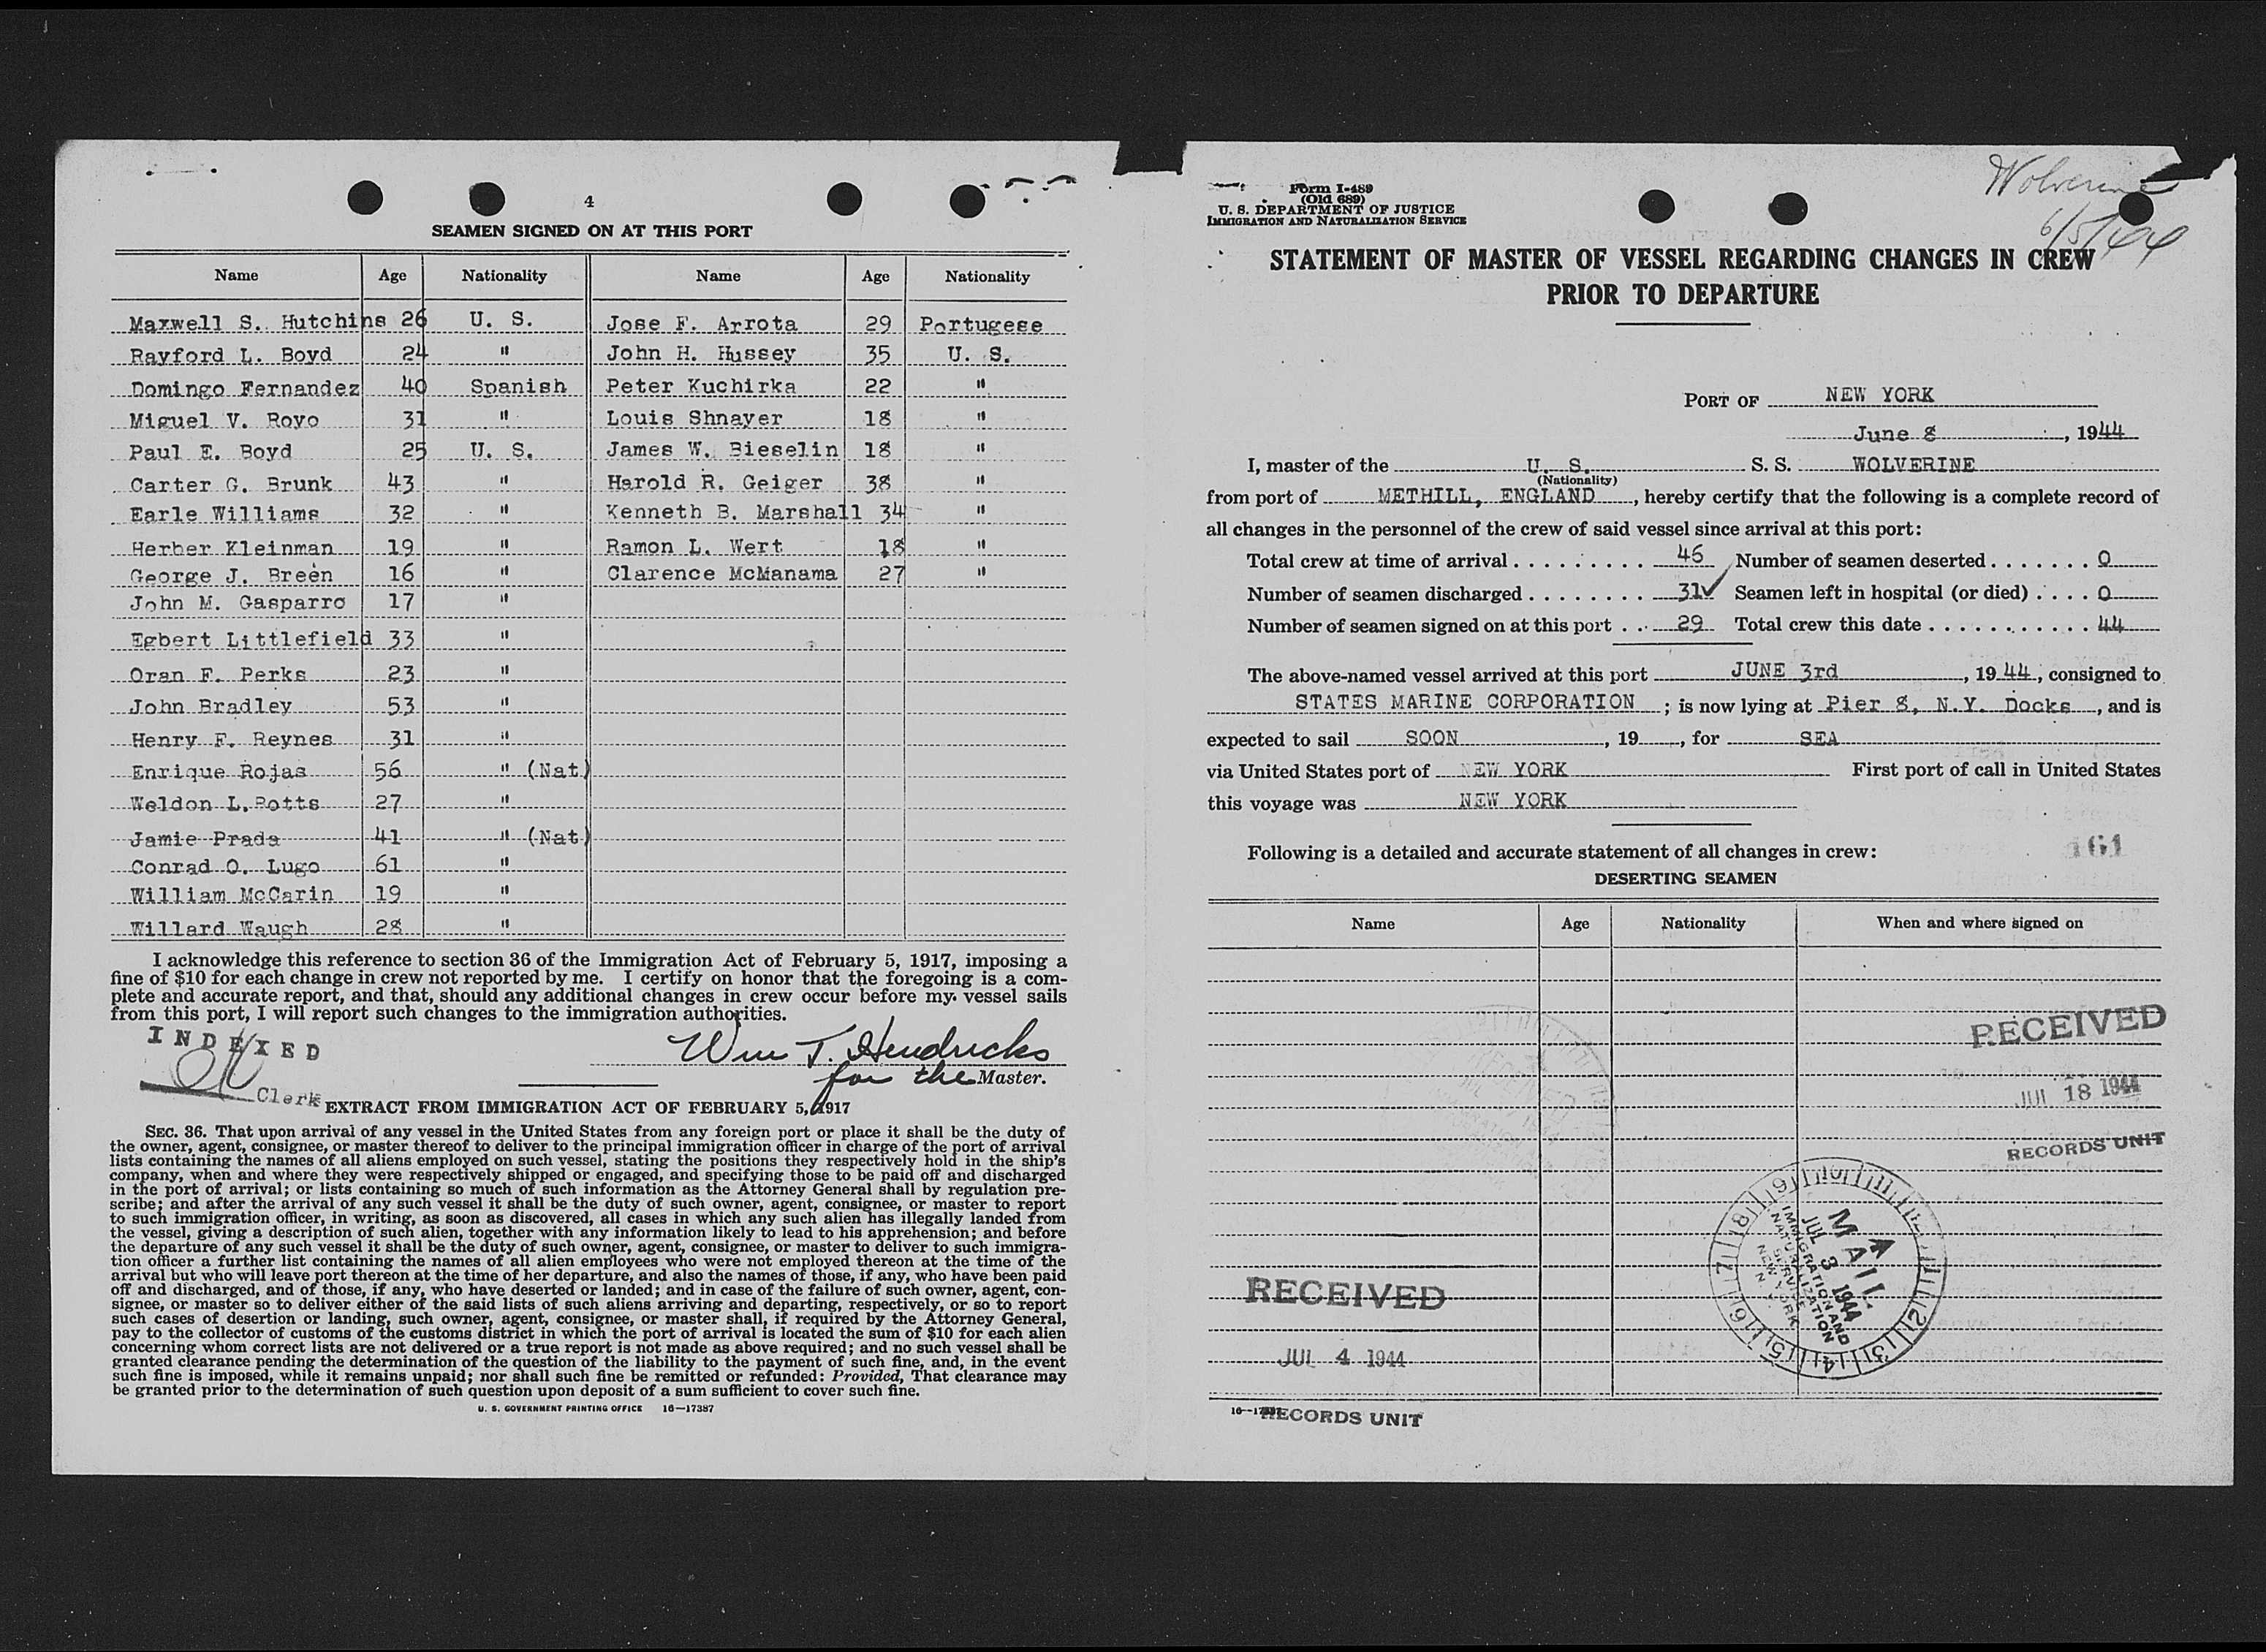 4
SEAMEN SIGNED ON AT THIS PORT
Name Age Nationality Name Age Nationality
Maxwell S. Hutchins 26 U. S. Jose F. Arrota 29 Portugese
Rayford L. Boyd 24 " John H. Hussey 35 U. S.
Domingo Fernandez 40 Spanish Peter Kuchirka 22 "
Miguel V. Royo 31 " Louis Shnayer 18 "
Paul E. Boyd 25 U. S. James W. Bieselin 18 "
Carter G. Brunk 43 " Harold R. Geiger 38 "
Earle Williams 32 " Kenneth B. Marshall 34 "
Herber Kleinman 19 " Ramon L. Wert 18 "
George J. Breen 16 " Clarence McManama 27 "
John M. Gasparro 17 "
Egbert Littlefield 33 "
Oran F. Perks 23 "
John Bradley 53 "
Henry F. Reynes 31 "
Enrique Rojas 56 " (Nat)
Weldon L. Potts 27 "
Jamie Prada 41 " (Nat)
Conrad O. Lugo 61 "
William McCarin 19 "
Willard Waugh 28 "
I acknowledge this reference to section 36 of the Immigration Act of February 5, 1917, imposing a
fine of $10 for each change in crew not reported by me. I certify on honor that the foregoing is a com-
plete and accurate report, and that, should any additional changes in crew occur before my vessel sails
from this port, I will report such changes to the immigration authorities.
INDEXED
Wm T. Hendricks
for the Master.
Clerk
EXTRACT FROM IMMIGRATION ACT OF FEBRUARY 5, 1917
SEC. 36. That upon arrival of any vessel in the United States from any foreign port or place it shall be the duty of
the owner, agent, consignee, or master thereof to deliver to the principal immigration officer in charge of the port of arrival
lists containing the names of all aliens employed on such vessel, stating the positions they respectively hold in the ship's
company, when and where they were respectively shipped or engaged, and specifying those to be paid off and discharged
in the port of arrival; or lists containing so much of such information as the Attorney General shall by regulation pre-
scribe; and after the arrival of any such vessel it shall be the duty of such owner, agent, consignee, or master to report
to such immigration officer, in writing, as soon as discovered, all cases in which any such alien has illegally landed from
the vessel, giving a description of such alien, together with any information likely to lead to his apprehension; and before
the departure of any such vessel it shall be the duty of such owner, agent, consignee, or master to deliver to such immigra-
tion officer a further list containing the names of all alien employees who were not employed thereon at the time of the
arrival but who will leave port thereon at the time of her departure, and also the names of those, if any, who have been paid
off and discharged, and of those, if any, who have deserted or landed; and in case of the failure of such owner, agent, con-
signee, or master so to deliver either of the said lists of such aliens arriving and departing, respectively, or so to report
such cases of desertion or landing, such owner, agent, consignee, or master shall, if required by the Attorney General,
pay to the collector of customs of the customs district in which the port of arrival is located the sum of $10 for each alien
concerning whom correct lists are not delivered or a true report is not made as above required; and no such vessel shall be
granted clearance pending the determination of the question of the liability to the payment of such fine, and, in the event
such fine is imposed, while it remains unpaid; nor shall such fine be remitted or refunded: Provided, That clearance may
be granted prior to the determination of such question upon deposit of a sum sufficient to cover such fine.
U. S. GOVERNMENT PRINTING OFFICE 16—17387
Wolverine
6/5/44
Form I-489
(Old 689)
U. S. DEPARTMENT OF JUSTICE
IMMIGRATION AND NATURALIZATION SERVICE
STATEMENT OF MASTER OF VESSEL REGARDING CHANGES IN CREW
PRIOR TO DEPARTURE
PORT OF NEW YORK
June 8, 1944
I, master of the U. S. S. S. WOLVERINE
(Nationality)
from port of METHILL, ENGLAND, hereby certify that the following is a complete record of
all changes in the personnel of the crew of said vessel since arrival at this port:
Total crew at time of arrival 46 Number of seamen deserted 0
Number of seamen discharged 31✓ Seamen left in hospital (or died) 0
Number of seamen signed on at this port 29 Total crew this date 44
The above-named vessel arrived at this port JUNE 3rd, 1944, consigned to
STATES MARINE CORPORATION; is now lying at Pier 8, N.Y. Docks, and is
expected to sail SOON, 19, for SEA
via United States port of NEW YORK First port of call in United States
this voyage was NEW YORK
161
Following is a detailed and accurate statement of all changes in crew:
DESERTING SEAMEN
Name Age Nationality When and where signed on
RECEIVED
JUL 18 1944
RECORDS UNIT
MAIL
JUL 3 1944
IMMIGRATION AND
NATURALIZATION
SERVICE
NEW YORK
N. Y.
RECEIVED
JUL 4 1944
RECORDS UNIT